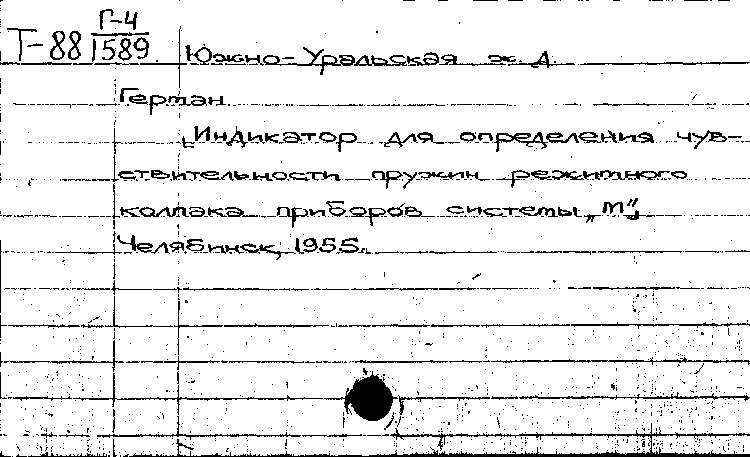 Г-4
Т-88 1589 Южно-Уральская ж. д.
Герман
[Индикатор для определения чув-
ствительности пружин режимного
колпака приборов системы „М"]
Челябинск, 1955.